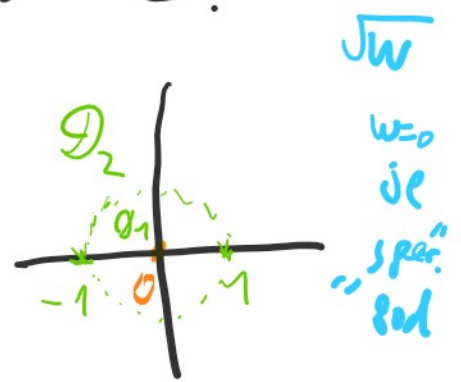 √w
w=0
je
„sper.“
bod
D₂
D₁
-1
0
1